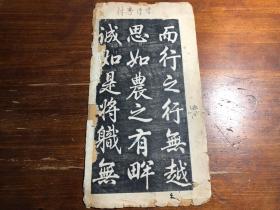 而行之行無越
思如農之有畔
誠如是將軄無